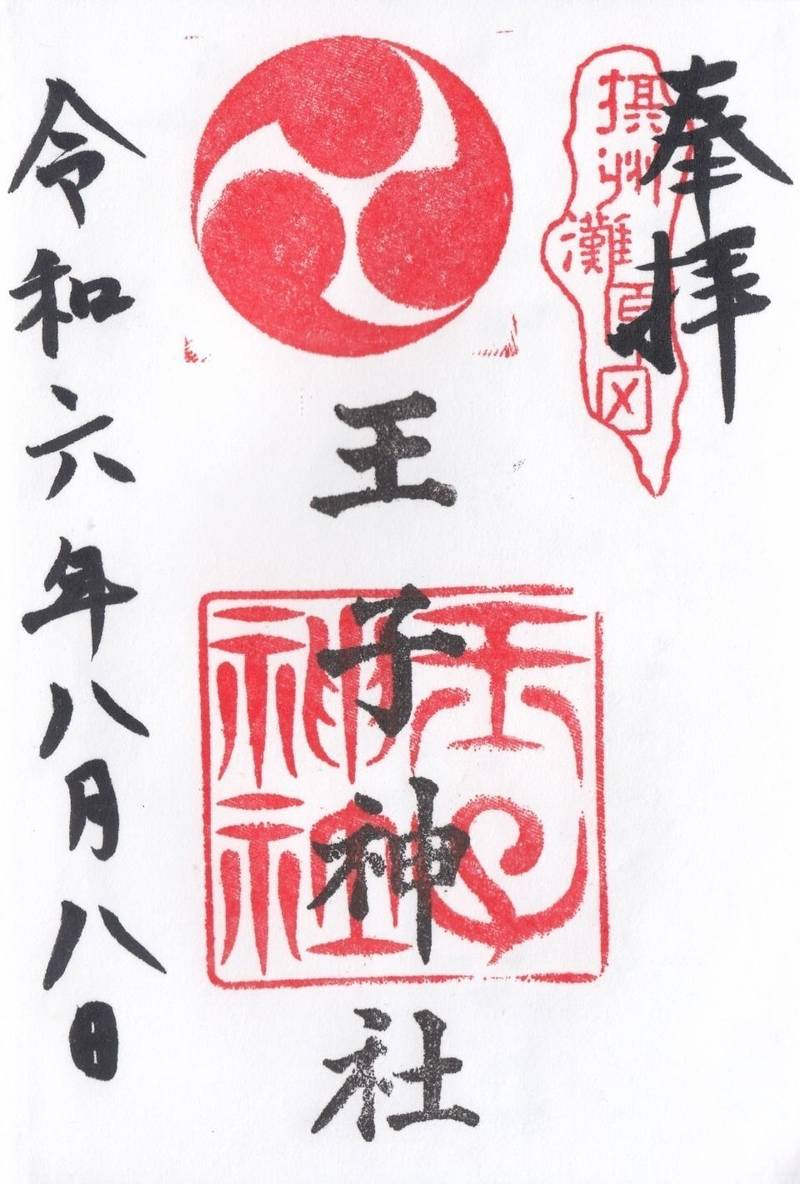 奉拝
摂州灘原田
王子神社
王子神社
令和六年八月八日